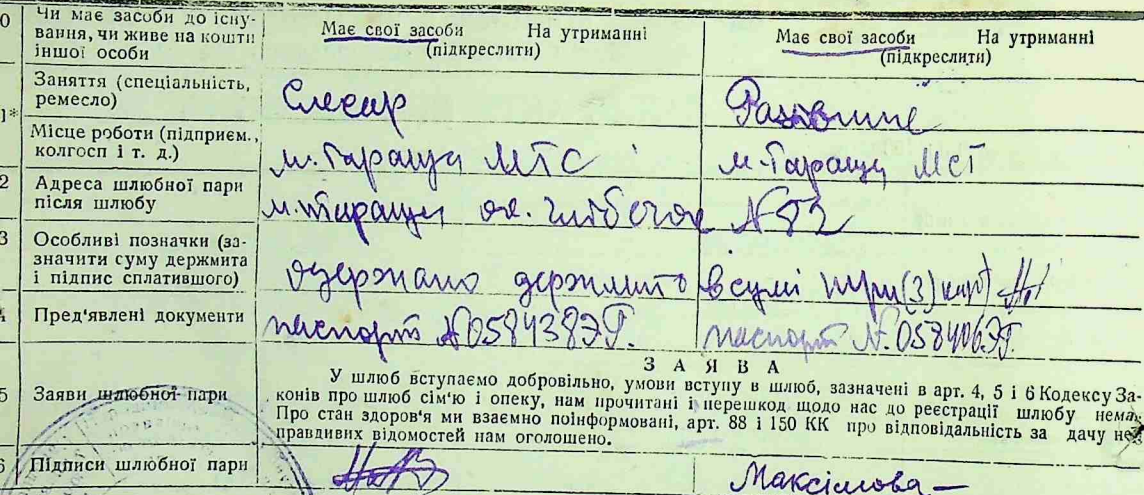 0 Чи має засоби до існу-
вання, чи живе на кошти
іншої особи
Має свої засоби На утриманні
(підкреслити)
Має свої засоби На утриманні
(підкреслити)
1* Заняття (спеціальність,
ремесло)
Слесар
Місце роботи (підприєм.,
колгосп і т. д.)
м. Тараща МТС
м. Тараща
2 Адреса шлюбної пари
після шлюбу
м. Тараща N 82
3 Особливі позначки (за-
значити суму держмита
і підпис сплатившого)
одержано держмито в сумі три (3) карб
4 Пред'явлені документи
паспорт N 058438 ЭГ.
паспорт N. 058406 ЭГ.
ЗАЯВА
5 Заяви шлюбної пари
У шлюб вступаємо добровільно, умови вступу в шлюб, зазначені в арт. 4, 5 і 6 Кодексу За-
конів про шлюб сім'ю і опеку, нам прочитані і перешкод щодо нас до реєстрації шлюбу нема.
Про стан здоров'я ми взаємно поінформовані, арт. 88 і 150 КК про відповідальність за дачу не-
правдивих відомостей нам оголошено.
6 Підписи шлюбної пари
Максімова